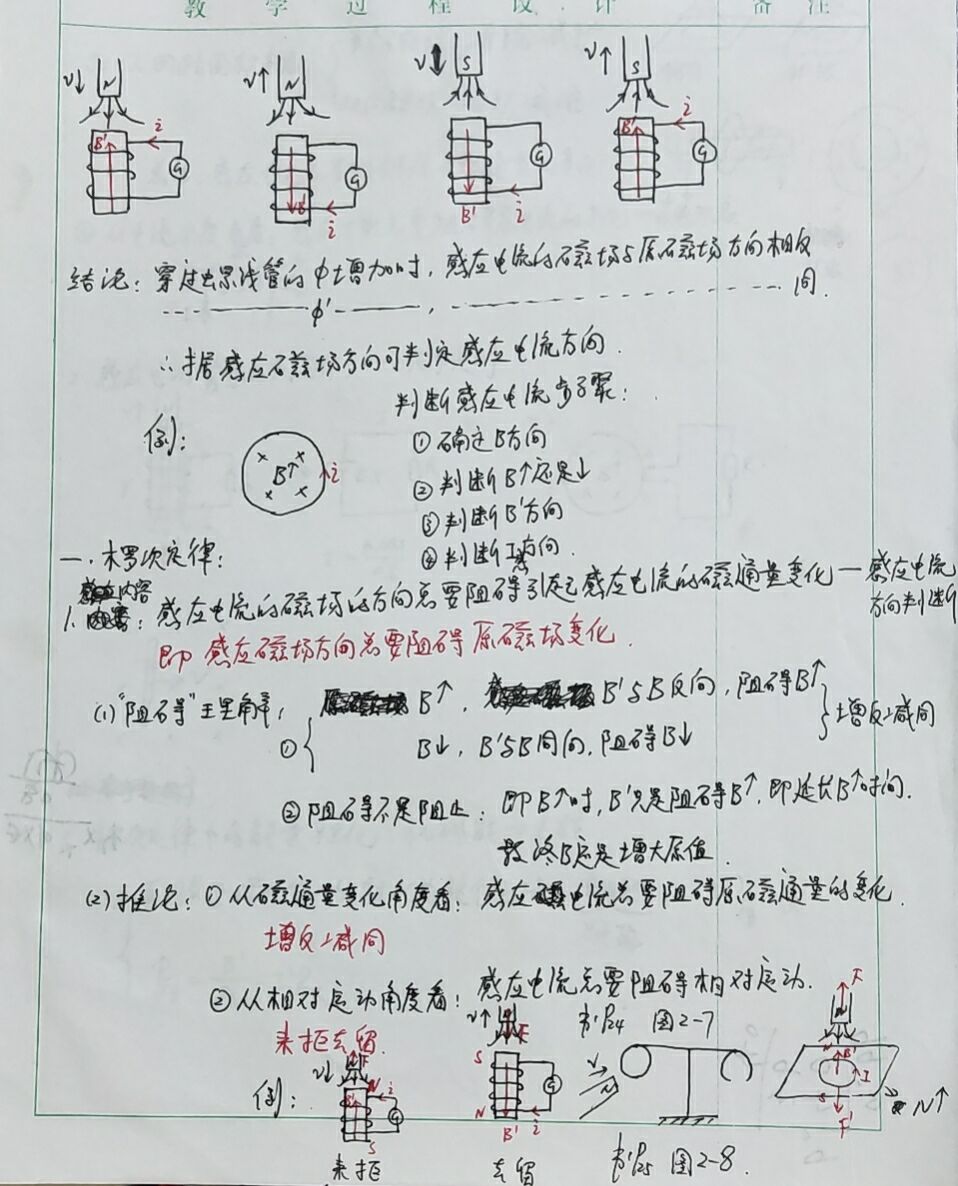 教 学 过 程 设 计 备 注
v↓ N v↑ N v↕ S v↑ S
B' i G B' i G B' i G B' i G
结论：穿过螺线管的φ增加时，感应电流的磁场与原磁场方向相反
- - - - - φ' - - - - - , - - - - - - - - - - 同.
∴据感应磁场方向可判定感应电流方向.
判断感应电流步骤：
例： B↑ i
①确定B方向
②判断B↑还是↓
③判断B'方向
④判断I感方向.
一.楞次定律：
1.内容：感应电流的磁场的方向总要阻碍引起感应电流的磁通量变化—感应电流方向判断
即 感应磁场方向总要阻碍原磁场变化.
(1)"阻碍"理解：
① B↑，B'与B反向，阻碍B↑
B↓，B'与B同向，阻碍B↓ 增反减同
②阻碍不是阻止：即B↑时，B'只是阻碍B↑，即延长B↑时间.
最终B还是增大原值.
(2)推论：①从磁通量变化角度看：感应电流总要阻碍原磁通量的变化.
增反减同
②从相对运动角度看：感应电流总要阻碍相对运动.
来拒去留. 书P24 图2-7
例： v↓ F N B' i G S
v↑ F S G N B' i
v N
F N N B' I S F' N↑
来拒 去留 书P25 图2-8.